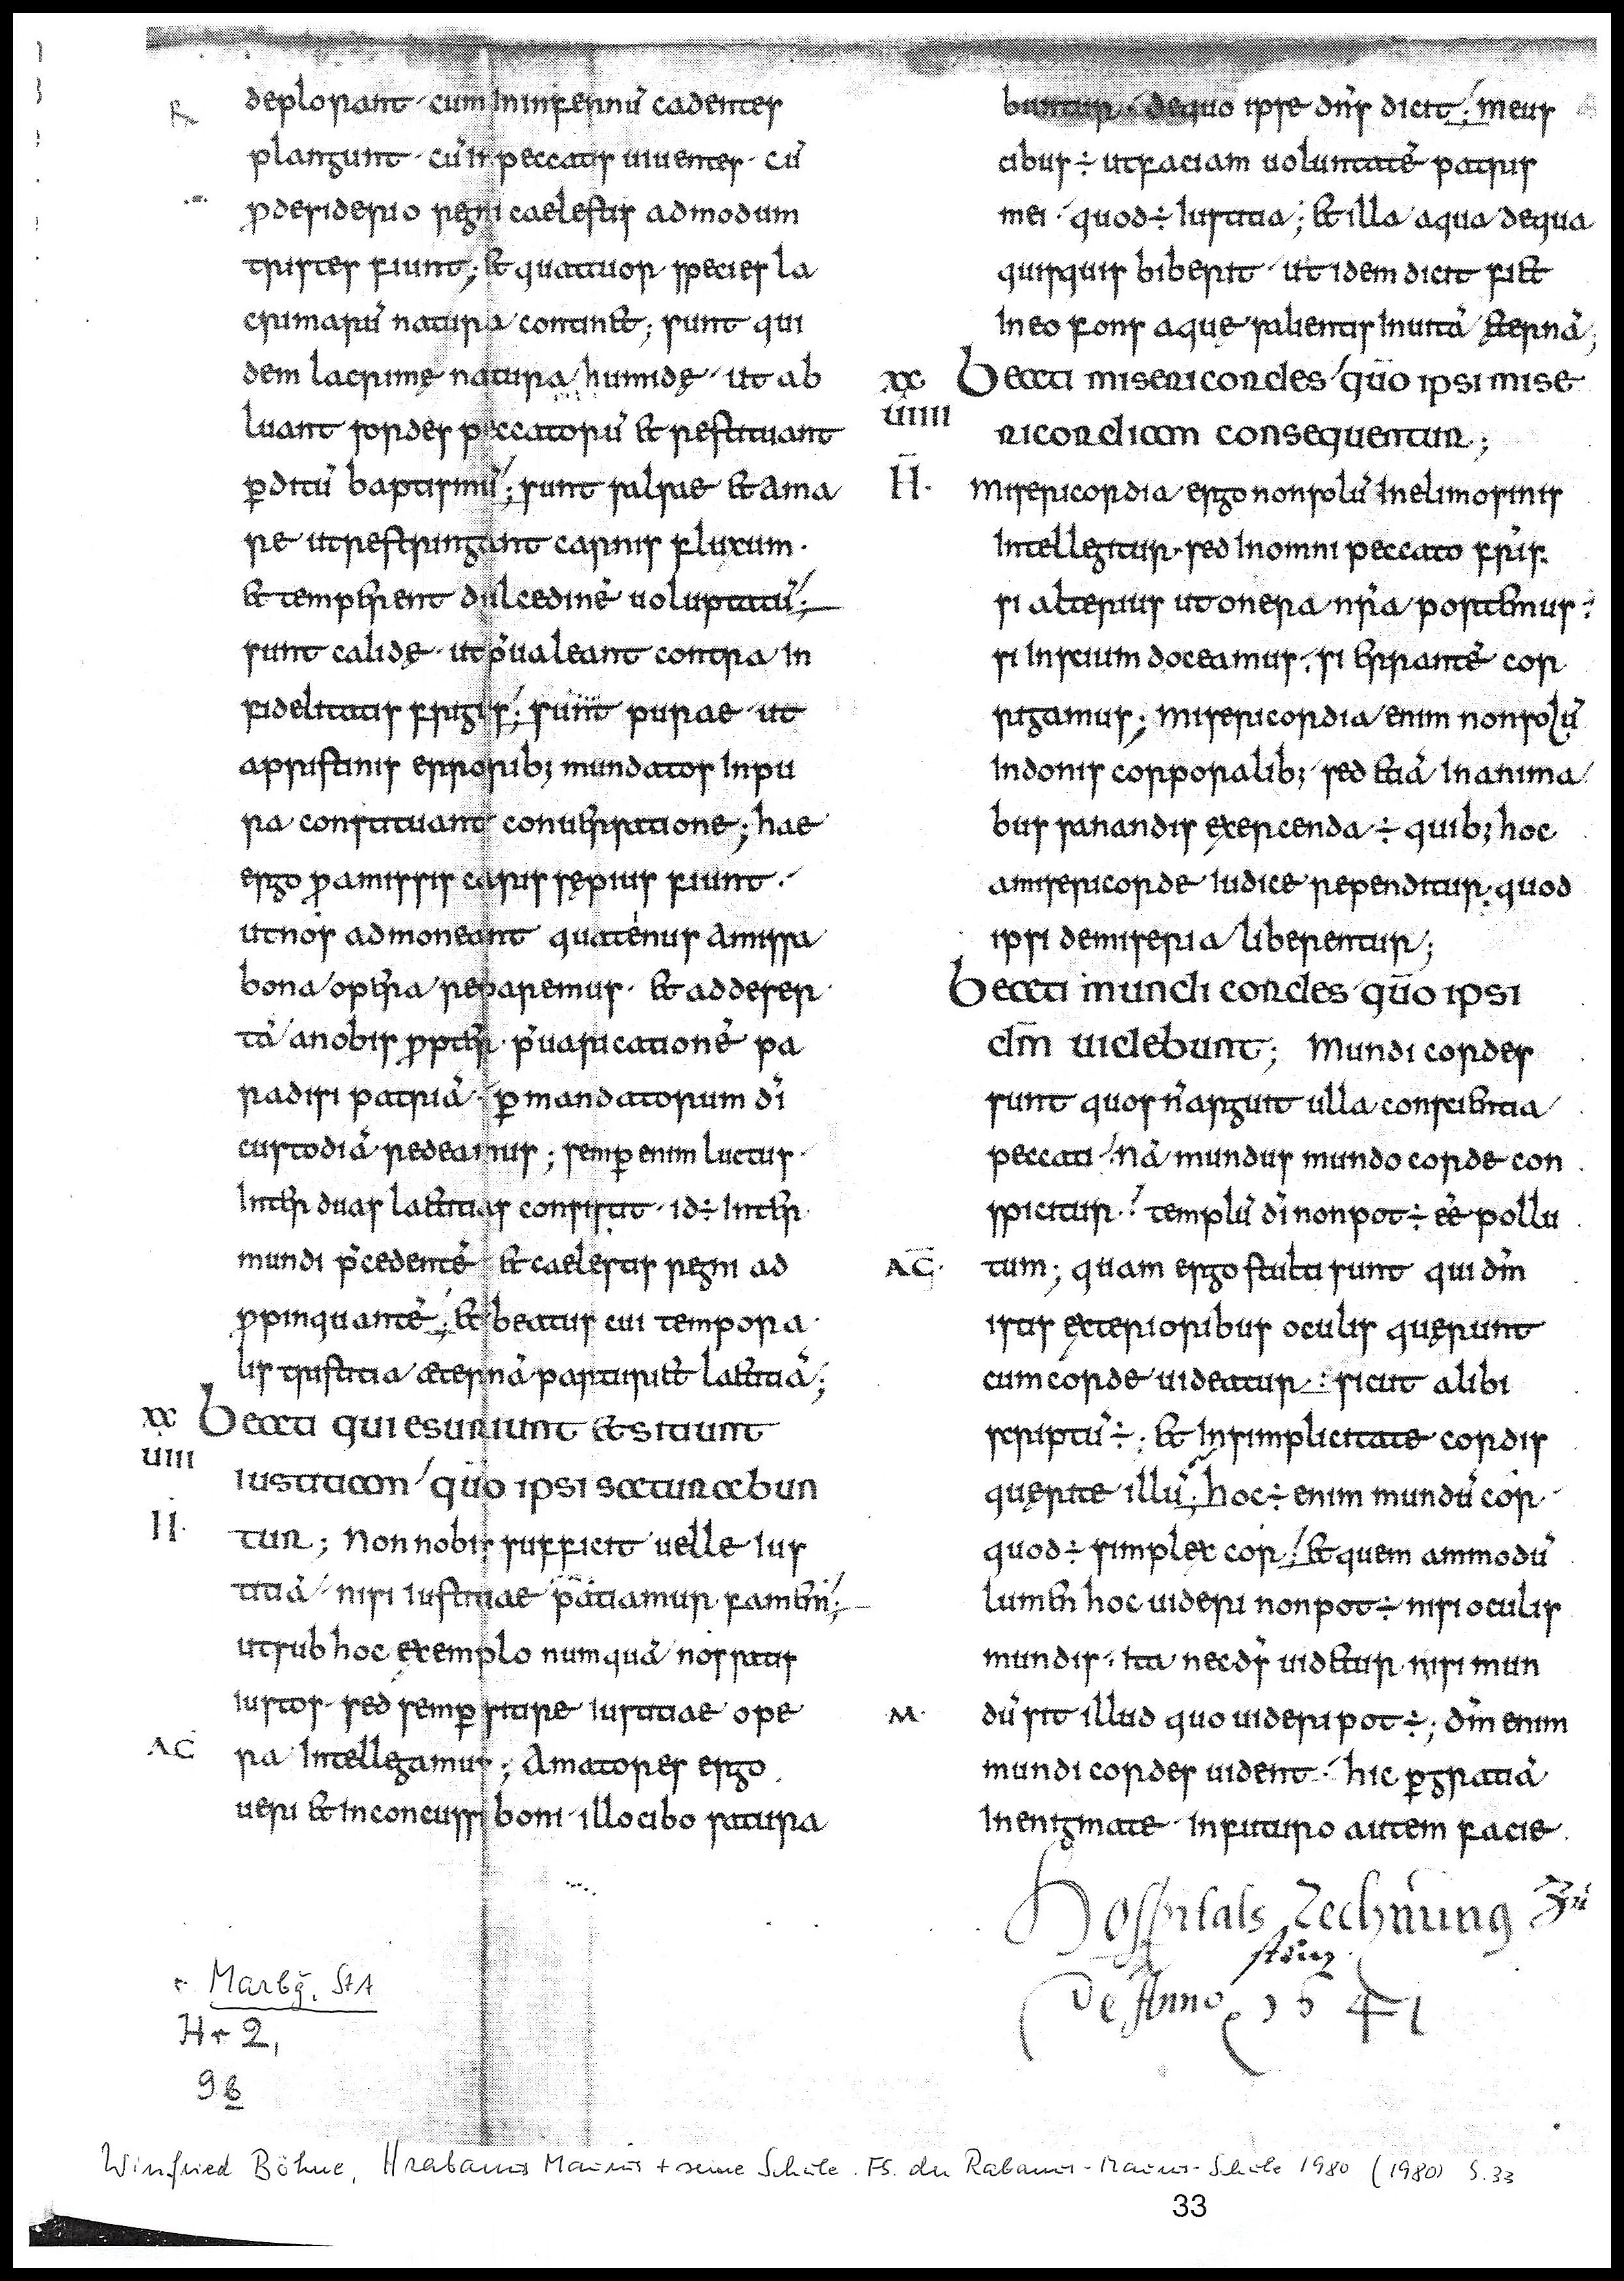 deplorant· cum ininfernū cadentes
plangunt· cū in peccatis uiuentes· cū
ꝓdesiderio regni caelestis admodum
tristes fiunt; & quattuor species la
crimarū natura contin&; sunt qui
dem lacrimę natura humidę· ut ab
luant sordes peccatorū & restituant
ꝑditū baptismū; sunt salsae & ama
re utrestringant carnis fluxum·
& temperent dulcedinē uoluptatū;
sunt calidę· utp̄ualeant contra in
fidelitatis frigus; sunt purae ut
apristinis errorib; mundatos inpu
ra constituant conuersatione; hae
ergo ꝓamissis casris sępius fiunt·
utnos admoneant quatenus amissa
bona opera reparemus· & addeser
tā anobis ꝓpter p̄uaricationē pa
radisi patriā· ꝑmandatorum dī
custodiā redeamus; semꝑ enim luctus·
Inter duas laetitias consistit· id÷ Inter
mundi p̄cedentē & caelestis regni ad
ꝓpinquantē; & beatus cui tempora
lis tristitia aeternā parturi& laetitiā;
xx Beati qui esuriunt & sitiunt
uiii iustitiam quō ipsi saturabun
H· tur; Non nobis sufficit uelle ius
titiā· nisi iustitiae patiamur famem;
utsub hoc exemplo numquā nos satis
iustos· sed semꝑ sitire iustitiae ope
AG ra Intellegamus; Amatores ergo
ueri & inconcussi boni illo cibo satura
buntur· dequo ipse dn̄s dicit; meus
cibus÷ utfaciam uoluntatē patris
mei· quod÷ Iustitia; & illa aqua dequa
quisquis biberit· ut idem dicit fi&
In eo fons aquę salientis Inuitā ęternā;
xx Beati misericordes quō ipsi mise
uiiii ricordiam consequentur;
H̄· Misericordia ergo nonsolū Inelimosinis
Intellegitur· sed Inomni peccato fr̄is·
si alterius utonera nr̄a portemus·
si Inscium doceamus· si errantē cor
rigamus; misericordia enim nonsolū
Indonis corporalib; sed &iā Inanima
bus sanandis exercenda÷ quib; hoc
amisericorde Iudice rependitur· quod
ipsi demiseria liberentur;
Beati mundi cordes quō ipsi
dm̄ uidebunt; Mundi cordes
sunt quos n̄ arguit ulla conscientia
peccati· Nā mundus mundo corde con
spicitur· templū dī nonpot÷ eē pollu
AḠ· tum; quam ergo stulti sunt qui dm̄
istis exterioribus oculis quęrunt
cumcorde uideatur· sicut alibi
scriptū÷; & Insimplicitate cordis
quęrite illū; hoc÷ enim mundū cor
quod÷ simplex cor; & quem ammodū
lumen hoc uideri nonpot÷ nisi oculis
mundis· Ita nec ds̄ uid&ur nisi mun
M· dū sit illud quo uideri pot÷; dm̄ enim
mundi cordes uident· hic ꝑgratiā
Inenigmate· Infuturo autem facie
Hospitals Rechnung Zu
De Anno 1641
Marbg. StA
Hr 2,
9 b
Winfried Böhne, Hrabanus Maurus + seine Schule. FS. der Rabanus-Maurus-Schule 1980 (1980) S. 33
33